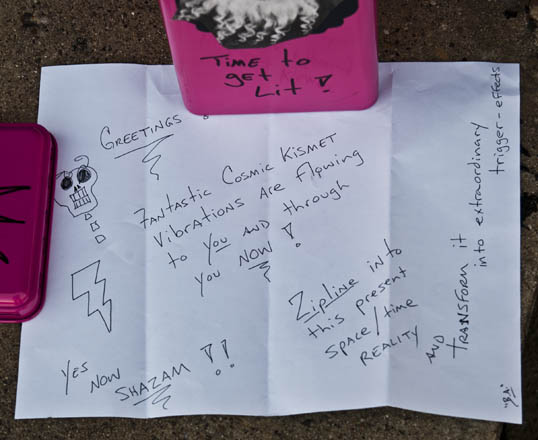 Time to
get
Lit!
GREETINGS
FANTASTIC COSMIC KISMET
Vibrations ARE Flowing
to YOU AND through
you NOW!
Zipline into
this present
space/time
REALITY
AND
TRANSFORM it
into extraordinary
trigger-effects
YES
NOW
SHAZAM!!
"BA"